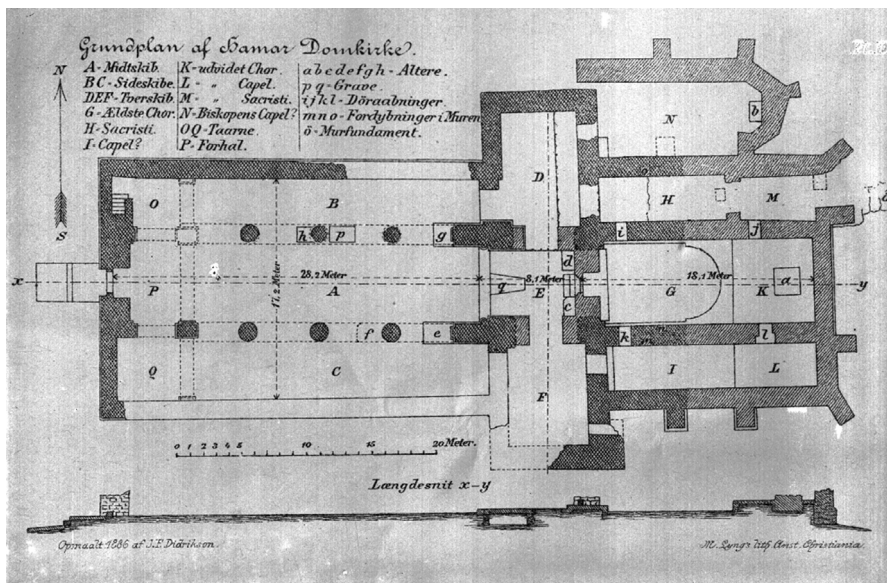 Grundplan af Hamar Domkirke.
A-Midtskib.
BC-Sideskibe.
DEF-Tverskib.
G-Ældste Chor.
H-Sacristi.
I-Capel?
K-udvidet Chor.
L- „ Capel.
M- „ Sacristi.
N-Biskopens Capel?
OQ-Taarne.
P-Forhal.
a b c d e f g h - Altere.
p q - Grave.
i j k l - Döraabninger.
m n o - Fordybninger i Muren
ö - Murfundament.
N
S
N
b
D
H
M
O
B
i
j
h
p
g
d
x
28,2 Meter
8,1 Meter
18,1 Meter
y
P
A
q
E
G
K
a
17,2 Meter
c
f
e
k
l
Q
C
F
I
L
0 1 2 3 4 5 10 15 20 Meter.
Længdesnit x-y
Opmaalt 1886 af J.F. Didrikson.
M. Lyngs lith Anst. Christiania.